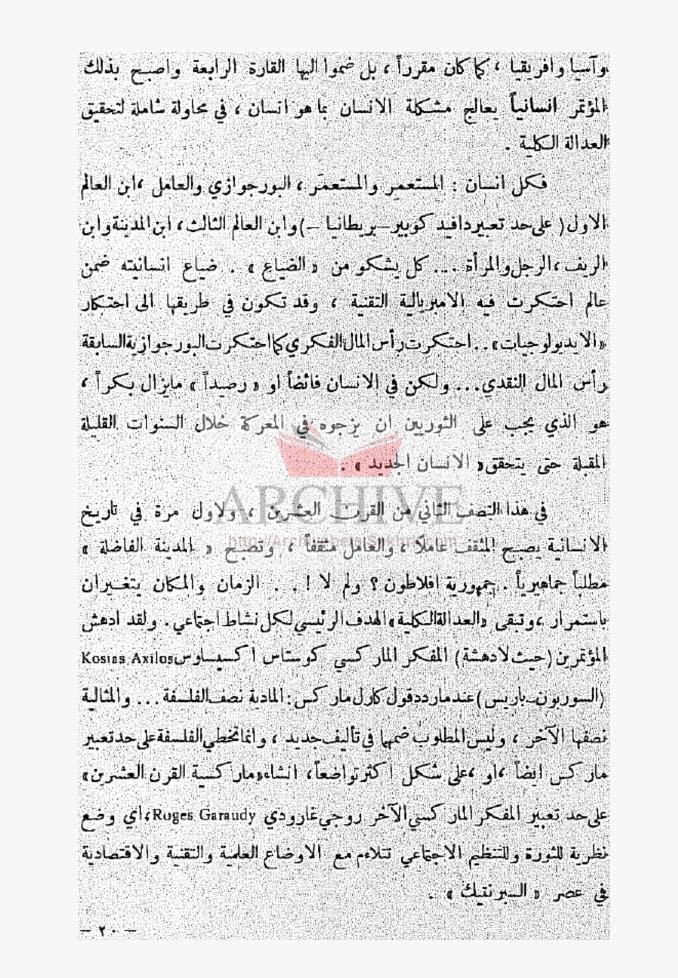 وآسيا وافريقيا ، كما كان مقرراً ، بل ضموا اليها القارة الرابعة واصبح بذلك
المؤتمر انسانياً يعالج مشكلة الانسان بما هو انسان ، في محاولة شاملة لتحقيق
العدالة الكلية .
فكل انسان : المستعمِر والمستعمَر ، البورجوازي والعامل ، ابن العالم
الاول ( على حد تعبير دافيد كوبير – بريطانيا – ) وابن العالم الثالث ، ابن المدينة وابن
الريف ، الرجل والمرأة ... كل يشكو من « الضياع » . ضياع انسانيته ضمن
عالم احتكرت فيه الامبريالية التقنية ، وقد تكون في طريقها الى احتكار
«الايديولوجيات» .. احتكرت رأس المال الفكري كما احتكرت البورجوازية السابقة
رأس المال النقدي ... ولكن في الانسان فائضاً او « رصيداً » مايزال بكراً ،
هو الذي يجب على الثوريين ان يزجوه في المعركة خلال السنوات القليلة
المقبلة حتى يتحقق « الانسان الجديد » .
ARCHIVE
في هذا النصف الثاني من القرن العشرين ، ولاول مرة في تاريخ
الانسانية يصبح المثقف عاملا ، والعامل مثقفاً ، وتصبح « المدينة الفاضلة »
مطلباً جماهيرياً . جمهورية افلاطون ؟ ولم لا ! .. الزمان والمكان يتغيران
باستمرار ، وتبقى «العدالة الكلية» الهدف الرئيسي لكل نشاط اجتماعي . ولقد ادهش
المؤتمرين (حيث لادهشة) المفكر الماركسي كوستاس اكسيلوس Kostas Axilos
(السوربون - باريس) عندما ردد قول كارل ماركس : المادية نصف الفلسفة ... والمثالية
نصفها الآخر ، وليس المطلوب ضمها في تأليف جديد ، وانما تخطي الفلسفة على حد تعبير
ماركس ايضاً ، او ، على شكل اكثر تواضعاً ، انشاء «ماركسية القرن العشرين»
على حد تعبير المفكر الماركسي الآخر روجي غارودي Roges Garaudy ، اي وضع
نظرية للثورة وللتنظيم الاجتماعي تتلاءم مع الاوضاع العلمية والتقنية والاقتصادية
في عصر « السبرنتيك » .
– ٢٠ –